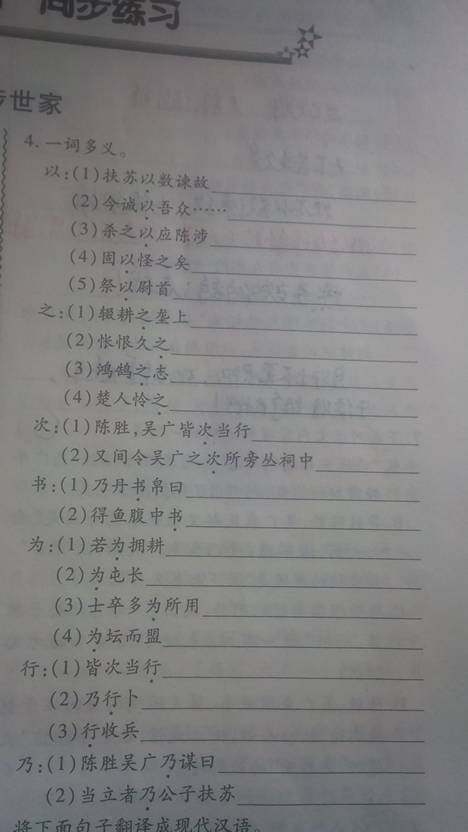 同步练习
世家
4.一词多义。
以:(1)扶苏以数谏故
(2)今诚以吾众……
(3)杀之以应陈涉
(4)固以怪之矣
(5)祭以尉首
之:(1)辍耕之垄上
(2)怅恨久之
(3)鸿鹄之志
(4)楚人怜之
次:(1)陈胜,吴广皆次当行
(2)又间令吴广之次所旁丛祠中
书:(1)乃丹书帛曰
(2)得鱼腹中书
为:(1)若为拥耕
(2)为屯长
(3)士卒多为所用
(4)为坛而盟
行:(1)皆次当行
(2)乃行卜
(3)行收兵
乃:(1)陈胜吴广乃谋曰
(2)当立者乃公子扶苏
将下面句子翻译成现代汉语。